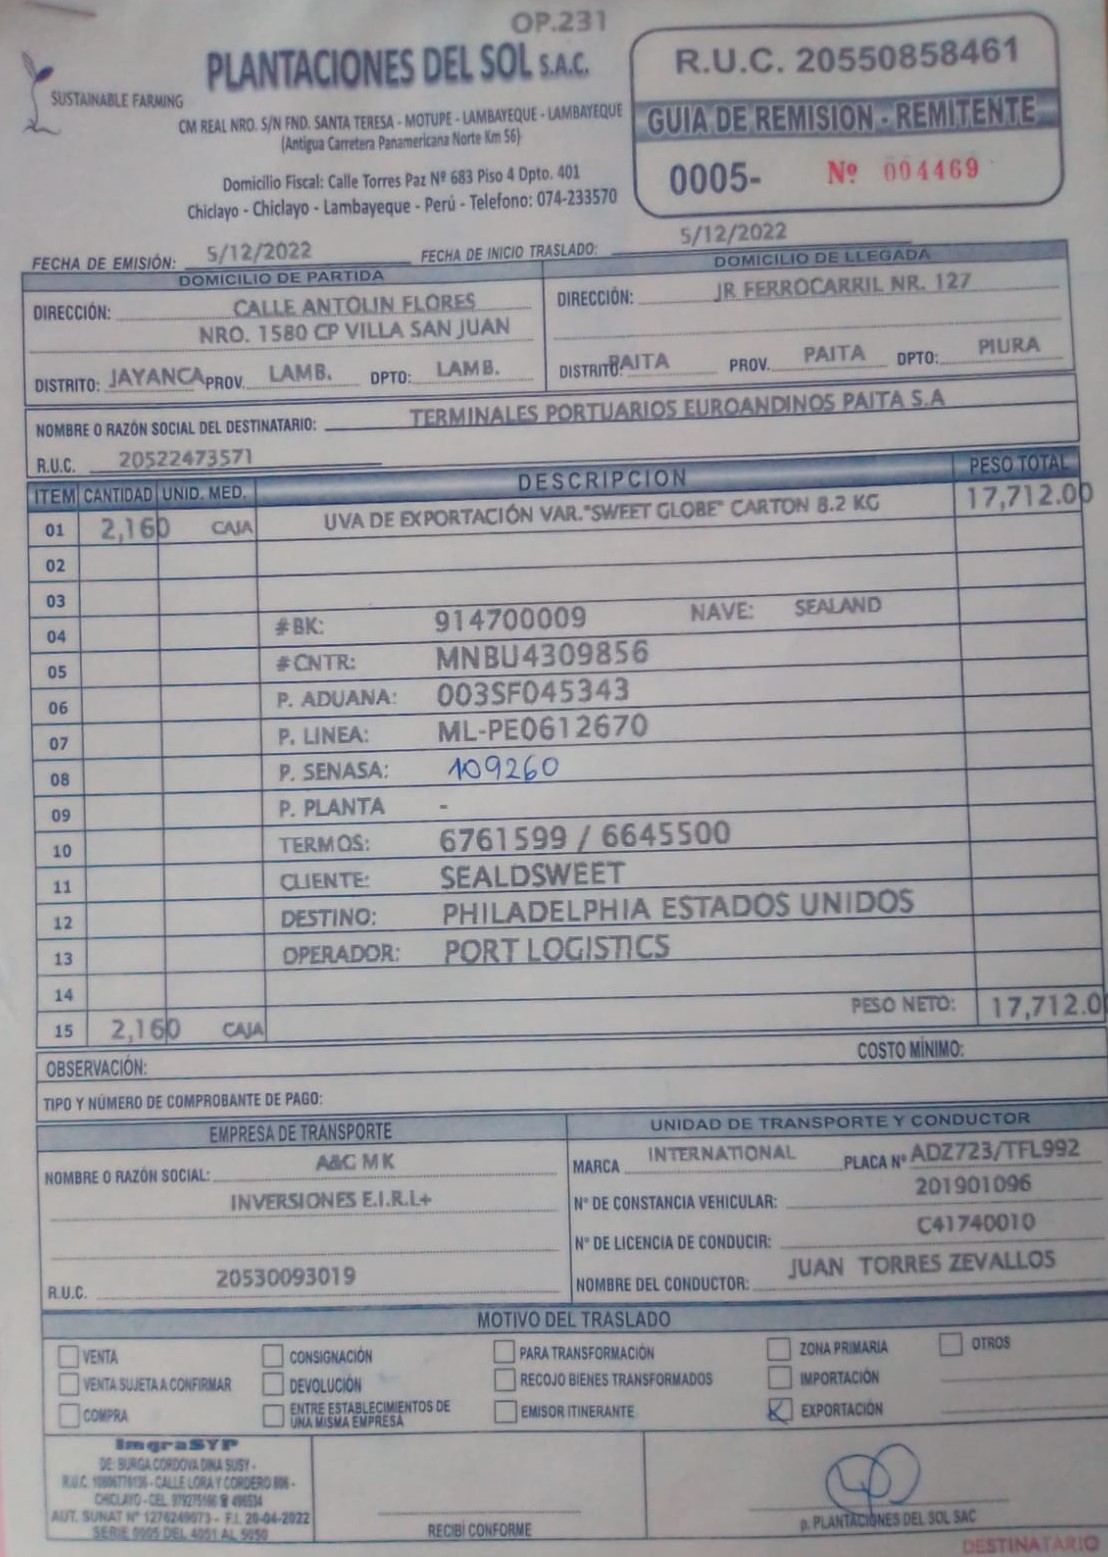 OP.231
SUSTAINABLE FARMING
PLANTACIONES DEL SOL S.A.C.
CM REAL NRO. S/N FND. SANTA TERESA - MOTUPE - LAMBAYEQUE - LAMBAYEQUE
(Antigua Carretera Panamericana Norte Km 56)
Domicilio Fiscal: Calle Torres Paz Nº 683 Piso 4 Dpto. 401
Chiclayo - Chiclayo - Lambayeque - Perú - Telefono: 074-233570
R.U.C. 20550858461
GUIA DE REMISION - REMITENTE
0005- Nº 004469
FECHA DE EMISIÓN: 5/12/2022 FECHA DE INICIO TRASLADO: 5/12/2022
DOMICILIO DE PARTIDA
DIRECCIÓN: CALLE ANTOLIN FLORES
NRO. 1580 CP VILLA SAN JUAN
DISTRITO: JAYANCA PROV. LAMB. DPTO: LAMB.
DOMICILIO DE LLEGADA
DIRECCIÓN: JR FERROCARRIL NR. 127
DISTRITO: PAITA PROV. PAITA DPTO: PIURA
NOMBRE O RAZÓN SOCIAL DEL DESTINATARIO: TERMINALES PORTUARIOS EUROANDINOS PAITA S.A
R.U.C. 20522473571
ITEM CANTIDAD UNID. MED. DESCRIPCION PESO TOTAL
01 2,160 CAJA UVA DE EXPORTACIÓN VAR."SWEET GLOBE" CARTON 8.2 KG 17,712.00
02
03
04 #BK: 914700009 NAVE: SEALAND
05 #CNTR: MNBU4309856
06 P. ADUANA: 003SF045343
07 P. LINEA: ML-PE0612670
08 P. SENASA: 109260
09 P. PLANTA -
10 TERMOS: 6761599 / 6645500
11 CLIENTE: SEALDSWEET
12 DESTINO: PHILADELPHIA ESTADOS UNIDOS
13 OPERADOR: PORT LOGISTICS
14
15 2,160 CAJA PESO NETO: 17,712.0
OBSERVACIÓN: COSTO MÍNIMO:
TIPO Y NÚMERO DE COMPROBANTE DE PAGO:
EMPRESA DE TRANSPORTE
NOMBRE O RAZÓN SOCIAL: A&G MK
INVERSIONES E.I.R.L+
R.U.C. 20530093019
UNIDAD DE TRANSPORTE Y CONDUCTOR
MARCA INTERNATIONAL PLACA Nº ADZ723/TFL992
Nº DE CONSTANCIA VEHICULAR: 201901096
Nº DE LICENCIA DE CONDUCIR: C41740010
NOMBRE DEL CONDUCTOR: JUAN TORRES ZEVALLOS
MOTIVO DEL TRASLADO
VENTA CONSIGNACIÓN PARA TRANSFORMACIÓN ZONA PRIMARIA OTROS
VENTA SUJETA A CONFIRMAR DEVOLUCIÓN RECOJO BIENES TRANSFORMADOS IMPORTACIÓN
COMPRA ENTRE ESTABLECIMIENTOS DE UNA MISMA EMPRESA EMISOR ITINERANTE EXPORTACIÓN
ImgraSYP
DE: BURGA CORDOVA DINA SUSY -
CALLE LORA Y CORDERO
CHICLAYO - CEL.
AUT. SUNAT Nº 1276249073 - F.I. 20-04-2022
SERIE 0005 DEL 4051 AL 5050
RECIBÍ CONFORME
p. PLANTACIONES DEL SOL SAC
DESTINATARIO